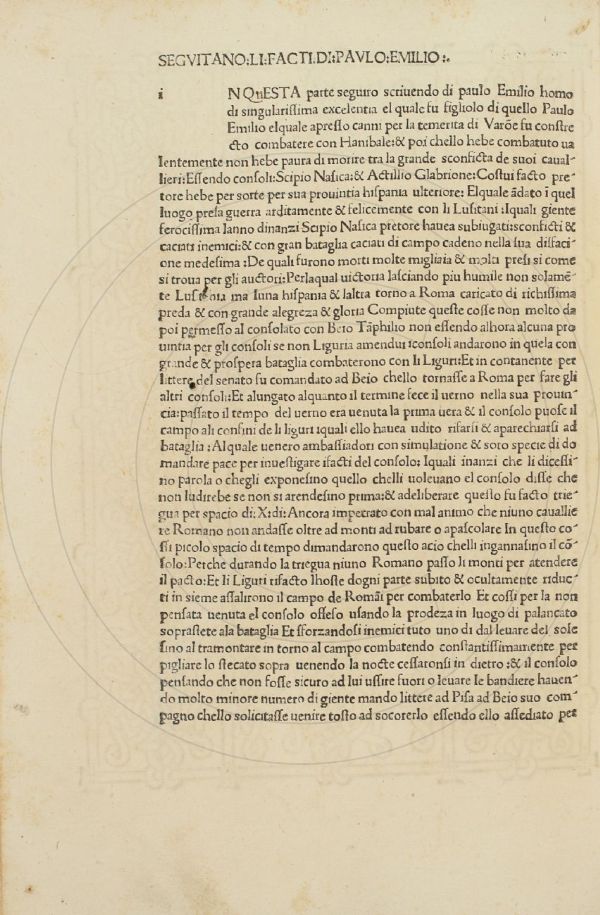 SEGVITANO:LI:FACTI:DI:PAVLO:EMILIO:.
i NQuESTA parte seguiro scriuendo di paulo Emilio homo
di singularissima excelentia el quale fu figliolo di quello Paulo
Emilio elquale apresso canni per la temerita di Varõe fu constre
cto combatere con Hanibale:& poi chello hebe combatuto ua
lentemente non hebe paura di morire tra la grande sconficta de suoi caual-
lieri:Essendo consoli:Scipio Nasica:& Actillio Glabrione:Costui facto pre-
tore hebe per sorte per sua prouintia hispania ulteriore:Elquale ãdato ĩ quel
luogo presa guerra arditamente & felicemente con li Lusitani:Iquali giente
ferocissima lanno dinanzi Scipio Nasica pretore hauea subiugati:sconficti &
caciati inemici:& con gran bataglia caciati di campo cadeno nella sua disfaci-
one medesima:De quali furono morti molte migliaia & molti presi si come
si troua per gli auctori:Perlaqual uictoria lasciando piu humile non solamẽ-
te Lusitania ma luna hispania & laltra torno a Roma caricato di richissima
preda & con grande alegreza & gloria Compiute queste cosse non molto da
poi permesso al consolato con Beio Tãphilio non essendo alhora alcuna pro
uintia per gli consoli se non Liguria amendui iconsoli andarono in quela con
grande & prospera bataglia combaterono con li Liguri:Et in contanente per
littere del senato fu comandato ad Beio chello tornasse a Roma per fare gli
altri consoli:Et alungato alquanto il termine fece il uerno nella sua prouin-
cia:passato il tempo del uerno era uenuta la prima uera & il consolo puose il
campo ali confini de li liguri iquali ello hauea udito rifarsi & aparechiarsi ad
bataglia:Alquale uenero ambassiadori con simulatione & soto specie di do
mandare pace per inuestigare ifacti del consolo:Iquali inanzi che li dicessi-
no parola o chegli exponesino quello chelli uoleuano el consolo disse che
non ludirebe se non si arendesino prima:& adeliberare questo fu facto trie-
gua per spacio di:X:di:Ancora impetrato con mal animo che niuno cauallie
re Romano non andasse oltre ad monti ad rubare o apascolare In questo co-
si picolo spacio di tempo dimandarono questo acio chelli ingannasino il cõ-
solo:Perche durando la triegua niuno Romano passo li monti per atendere
il pacto:Et li Liguri rifacto lhoste dogni parte subito & ocultamente riduc-
ti in sieme assalirono il campo de Romãi per combaterlo Et cossi per la non
pensata uenuta el consolo offeso usando la prodeza in luogo di palancato
soprastete ala bataglia Et sforzandosi inemici tuto uno di dal leuare del sole
sino al tramontare in torno al campo combatendo constantissimamente per
pigliare lo stecato sopra uenendo la nocte cessaronsi in dietro:& il consolo
pensando che non fosse sicuro ad lui ussire fuori o leuare le bandiere hauen-
do molto minore numero di giente mando littere ad Pisa ad Beio suo com-
pagno chello solicitasse uenire tosto ad socorerlo essendo ello assediato per